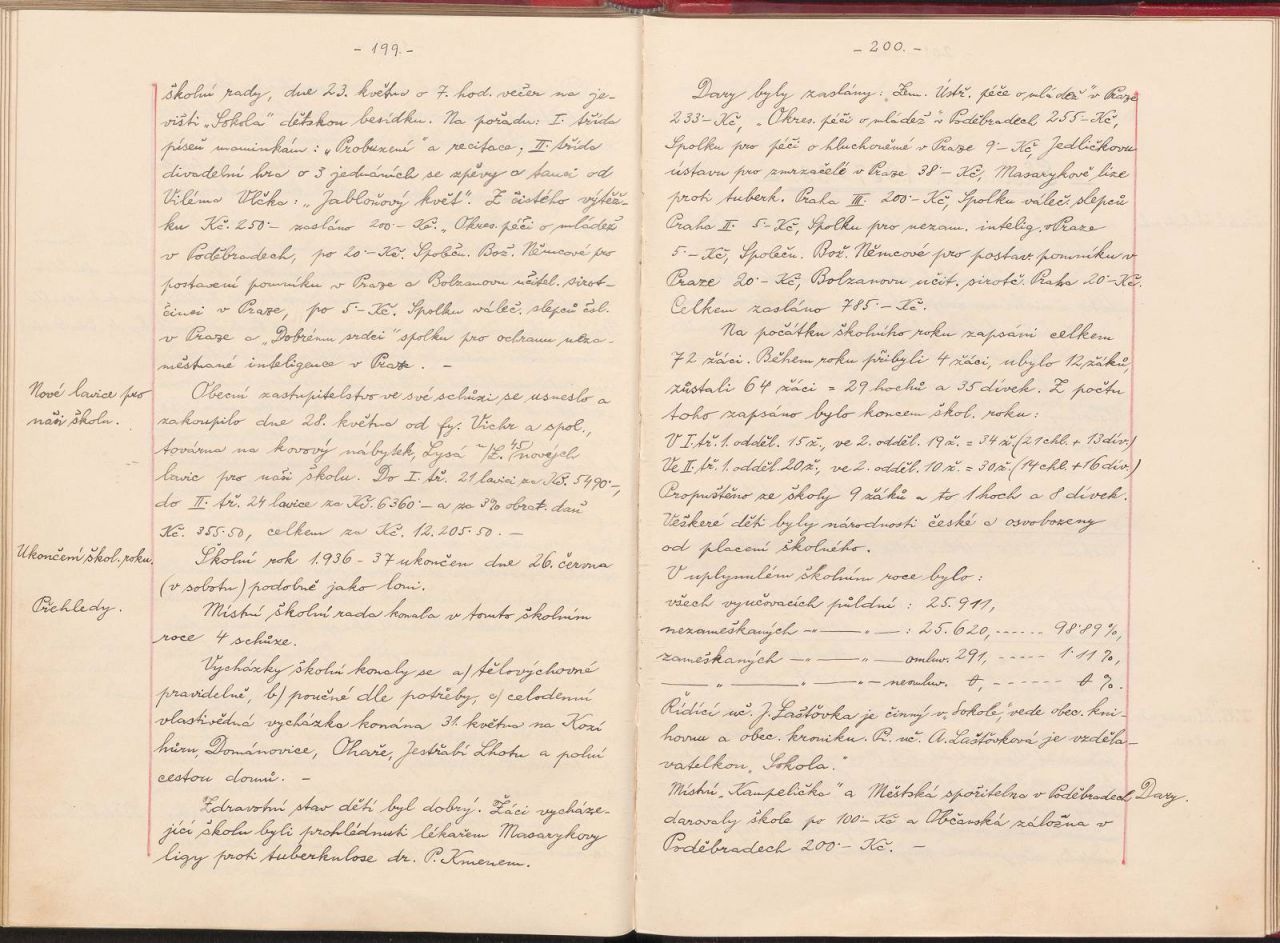 - 199. -
školní rady, dne 23. května o 7. hod. večer na je-
višti „Sokola" dětskou besídku. Na pořadu: I. třída
píseň maminkám: „Probuzení" a recitace, II. třída
divadelní hra o 3 jednáních se zpěvy a tanci od
Viléma Vlčka: „Jabloňový květ". Z čistého výtěž-
ku Kč. 250·- zasláno 200·- Kč. „Okres. péči o mládež
v Poděbradech, po 20·- Kč. Společn. Bož. Němcové pro
postavení pomníku v Praze a Bolzanovu učitel. sirot-
činci v Praze, po 5·- Kč. Spolku váleč. slepců čsl.
v Praze a „Dobrému srdci" spolku pro ochranu neza-
městnané inteligence v Praze. -
Nové lavice pro
naši školu.
Obecní zastupitelstvo ve své schůzi se usneslo a
zakoupilo dne 28. května od fy. Vichr a spol.,
továrna na kovový nábytek, Lysá n/L. 45 nových
lavic pro naši školu. Do I. tř. 21 lavici za Kč. 5490·-,
do II. tř. 24 lavice za Kč. 6360·- a za 3% obrat. daň
Kč. 355·50, celkem za Kč. 12.205·50. -
Ukončení škol. roku.
Školní rok 1.936 - 37 ukončen dne 26. června
(v sobotu) podobně jako loni.
Přehledy.
Místní školní rada konala v tomto školním
roce 4 schůze.
Vycházky školní konaly se a/ tělovýchovné
pravidelně, b/ poučné dle potřeby, c/ celodenní
vlastivědná vycházka konána 31. května na Kozí
hůru, Dománovice, Ohaře, Jestřabí Lhotu a polní
cestou domů. -
Zdravotní stav dětí byl dobrý. Žáci vycháze-
jící školu byli prohlédnuti lékařem Masarykovy
ligy proti tuberkulose dr. P. Kmenem.
- 200. -
Dary byly zaslány: „Zem. Ústř. péče o mládež" v Praze
233·- Kč, „Okres. péči o mládež" v Poděbradech, 255·- Kč,
Spolku pro péči o hluchoněmé v Praze 9·- Kč, Jedličkovu
ústavu pro zmrzačelé v Praze 38·- Kč, Masarykově lize
proti tuberk. Praha III. 200·- Kč, Spolku váleč. slepců
Praha II. 5·- Kč, Spolku pro nezam. intelig. v Praze
5·- Kč, Společn. Bož. Němcové pro postav. pomníku v
Praze 20·- Kč, Bolzanovu učit. sirotč. Praha 20·- Kč.
Celkem zasláno 785·- Kč.
Na počátku školního roku zapsáni celkem
72 žáci. Během roku přibyli 4 žáci, ubylo 12 žáků,
zůstali 64 žáci = 29 hochů a 35 dívek. Z počtu
toho zapsáno bylo koncem škol. roku:
V I. tř. 1. odděl. 15 ž., ve 2. odděl. 19 ž. = 34 ž. (21 chl. + 13 dív.)
Ve II. tř. 1. odděl. 20 ž., ve 2. odděl. 10 ž. = 30 ž. (14 chl. + 16 dív.)
Propuštěno ze školy 9 žáků a to 1 hoch a 8 dívek.
Veškeré děti byly národnosti české a osvobozeny
od placení školného.
V uplynulém školním roce bylo:
všech vyučovacích půldní : 25.911,
nezameškaných -„- -„- : 25.620, ------ 98·89 %,
zameškaných -„- -„- omluv. 291, ----- 1·11 %,
-„- -„- -„- neomluv. 0, ------ 0 %.
Řídící uč. J. Laštovka je činný v „Sokole", vede obec. kni-
hovnu a obec. kroniku. Pí. uč. A. Laštovková je vzděla-
vatelkou „Sokola."
Místní „Kampelička" a Městská spořitelna v Poděbradech
Dary.
darovaly škole po 100·- Kč a Občanská záložna v
Poděbradech 200·- Kč. -